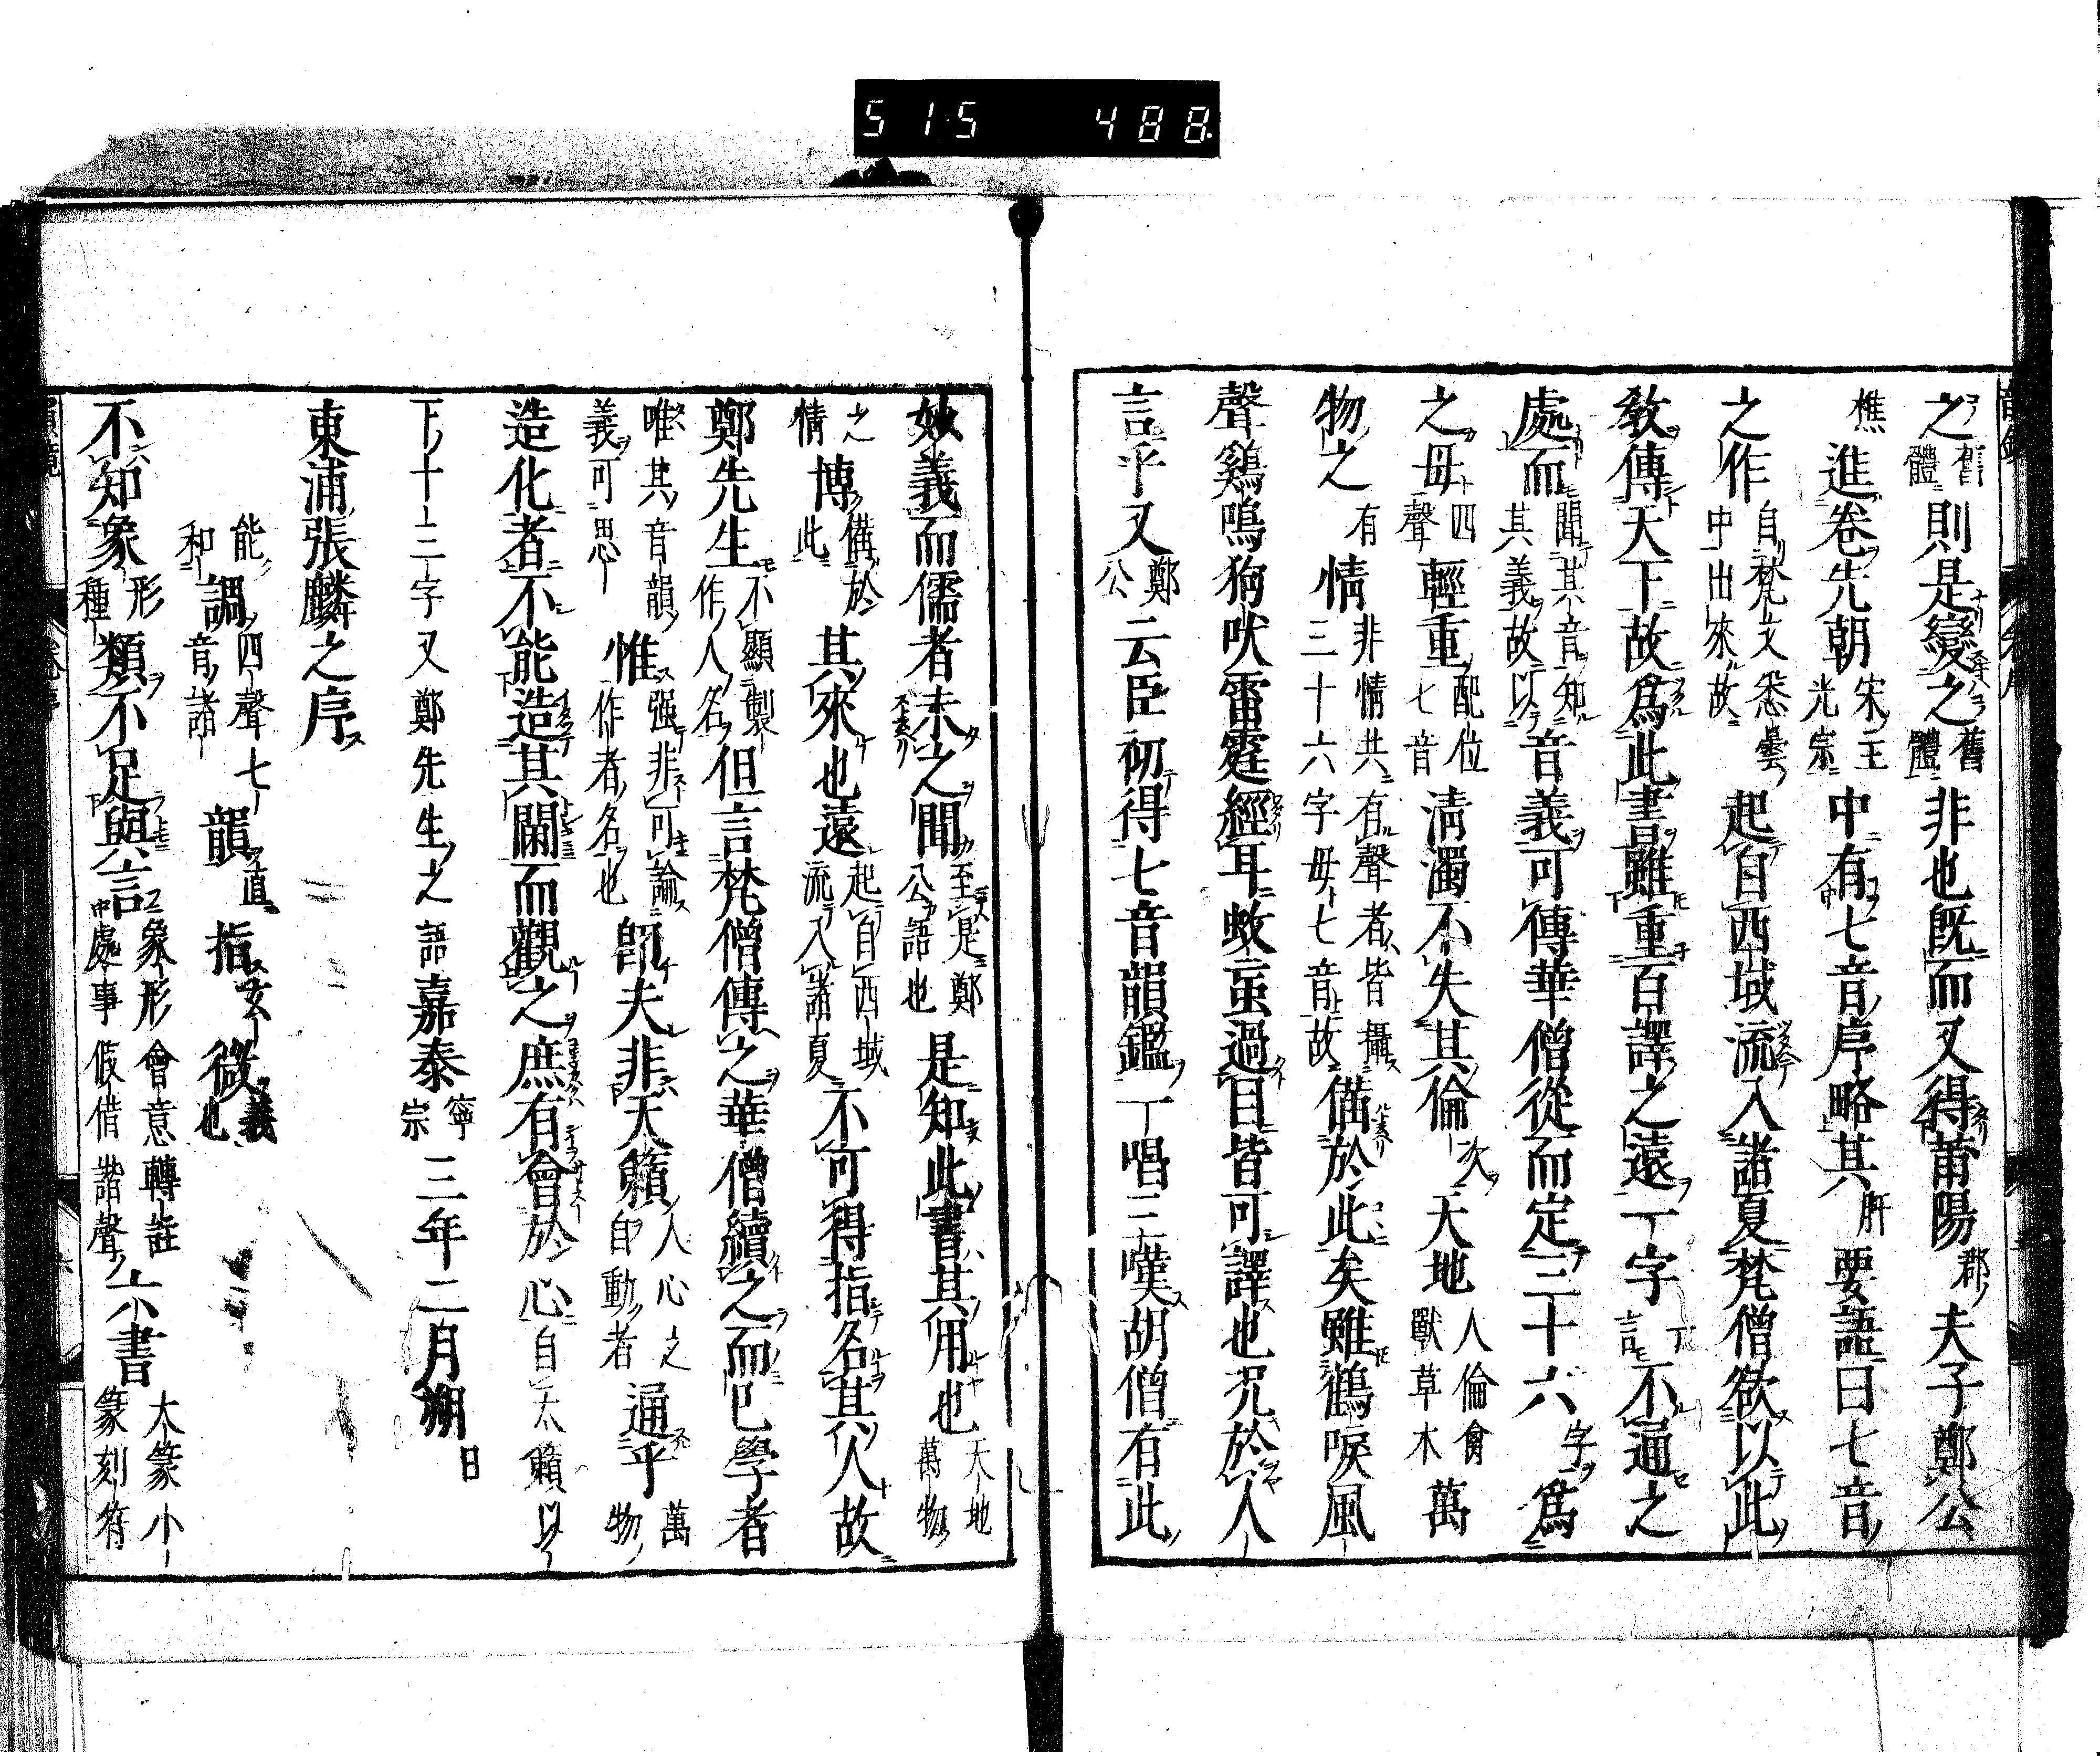 515 488
之舊體則是變之舊體非也既而又得莆陽郡夫子鄭公
樵進卷先朝宋王光宗中有七音序略其肝要語曰七音
之作自梵文悉曇中出來故起自西域流入諸夏梵僧欲以此
教傳天下故爲此書雖重百譯之遠一字一言不通之
處而聞其音知其義故以音義可傳華僧從而定三十六字爲
之母四聲輕重配位七音淸濁不失其倫次天地人倫禽獸草木萬
物之有情非情共有聲者皆攝三十六字母七音故備於此矣雖鶴唳風
聲鷄鳴狗吠雷霆經耳蚊虻過目皆可譯也况於人
言乎又鄭公云臣初得七音韻鑑一唱三嘆胡僧有此
妙義而儒者未之聞至是鄭公語也是知此書其用也天地萬物
之情博備於此其來也遠起自西域流入諸夏不可得指名其人故
鄭先生不顯製作人名但言梵僧傳之華僧續之而已學者
唯其音韻義可思惟强非可論作者名也即夫非天籟人心之自動者通乎萬物
造化者不能造其閫而觀之庶有會於心自太籟以
下十二字又鄭先生之語嘉泰寧宗三年二月朔日
東浦張麟之序
能和調四聲七音諸韻直指玄微義也
不知象形種類不足與言象形會意轉註中處事假借諧聲六書大篆小篆刻符